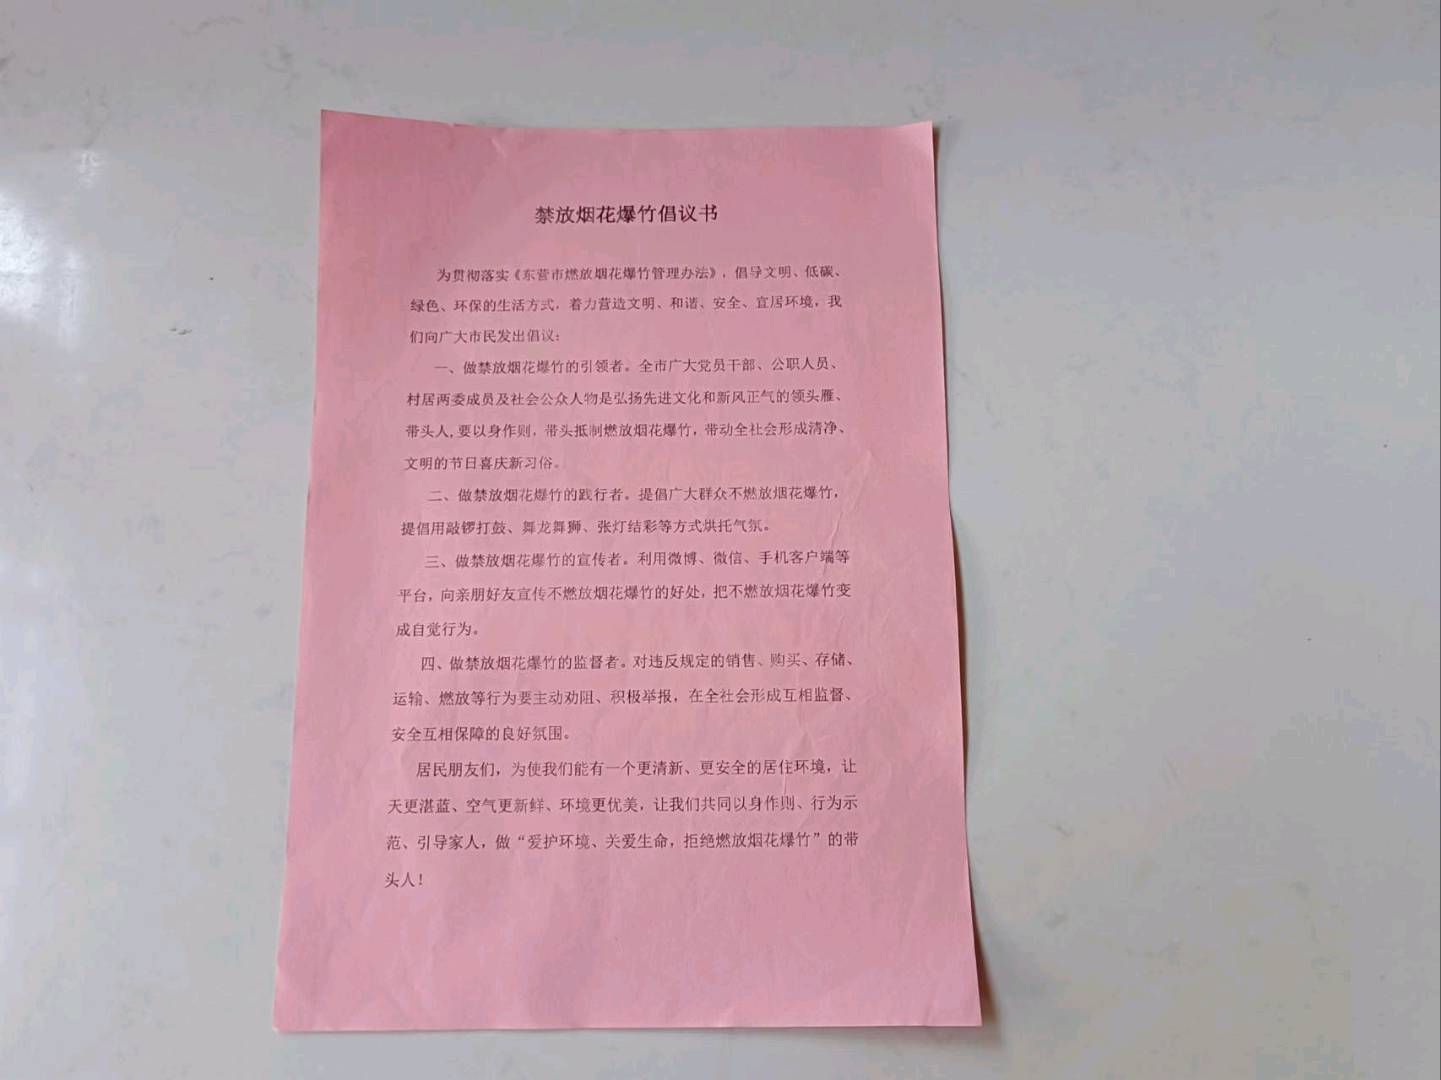 禁放烟花爆竹倡议书
为贯彻落实《东营市燃放烟花爆竹管理办法》，倡导文明、低碳、
绿色、环保的生活方式，着力营造文明、和谐、安全、宜居环境，我
们向广大市民发出倡议：
一、做禁放烟花爆竹的引领者。全市广大党员干部、公职人员、
村居两委成员及社会公众人物是弘扬先进文化和新风正气的领头雁、
带头人,要以身作则，带头抵制燃放烟花爆竹，带动全社会形成清净、
文明的节日喜庆新习俗。
二、做禁放烟花爆竹的践行者。提倡广大群众不燃放烟花爆竹，
提倡用敲锣打鼓、舞龙舞狮、张灯结彩等方式烘托气氛。
三、做禁放烟花爆竹的宣传者。利用微博、微信、手机客户端等
平台，向亲朋好友宣传不燃放烟花爆竹的好处，把不燃放烟花爆竹变
成自觉行为。
四、做禁放烟花爆竹的监督者。对违反规定的销售、购买、存储、
运输、燃放等行为要主动劝阻、积极举报，在全社会形成互相监督、
安全互相保障的良好氛围。
居民朋友们，为使我们能有一个更清新、更安全的居住环境，让
天更湛蓝、空气更新鲜、环境更优美，让我们共同以身作则、行为示
范、引导家人，做“爱护环境、关爱生命，拒绝燃放烟花爆竹”的带
头人！